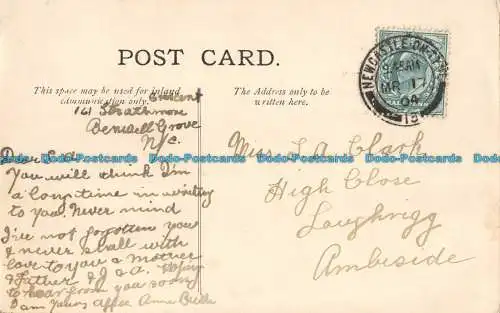 POST CARD.
This space may be used for inland
communication only.
The Address only to be
written here.
NEWCASTLE-ON-TYNE
9.45AM
MR 17
04
161 Strathmore
Crescent
Benwell Grove
N/c.
Dear
You will think I'm
a long time in writing
to you. Never mind
I've not forgotten you
& never shall with
love to you & mother
& Father & J & a.
to hear from you soon
I am yours affec Annie
Miss L A Clark
High Close
Loughrigg
Ambleside
Dodo-Postcards Dodo-Postcards Dodo-Postcards Dodo-Postcards